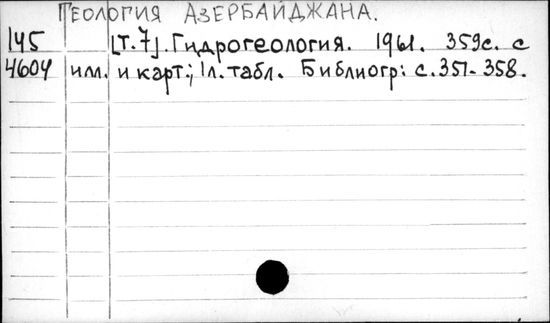 ГЕОЛОГИЯ АЗЕРБАЙДЖАНА.
145 [Т.7]. Гидрогеология. 1961. 359с. с
4604 илл. и карт.; 1л. табл. Библиогр: с.351-358.